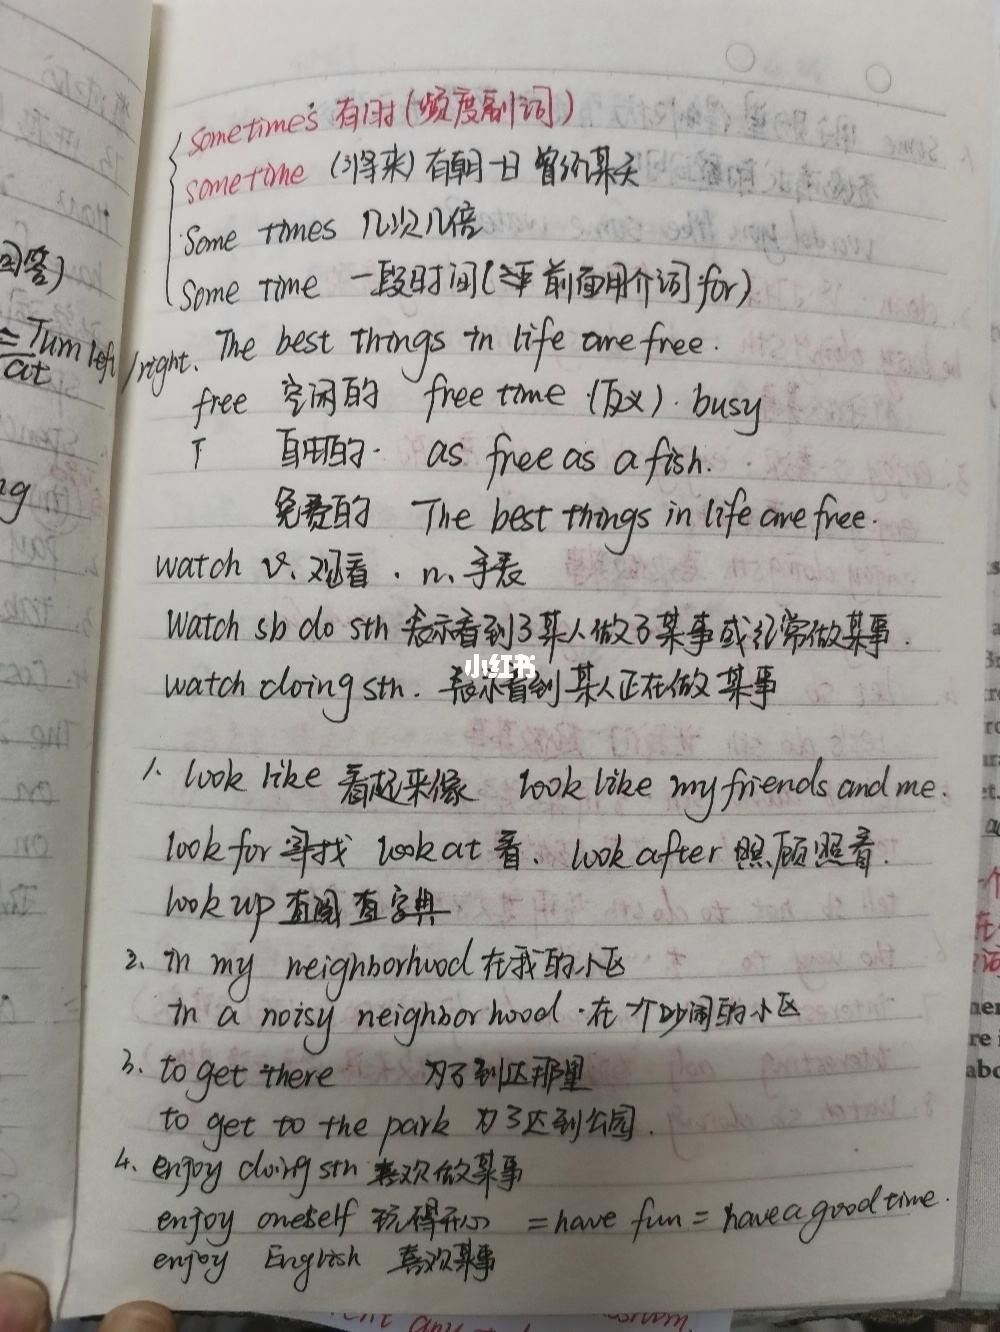 sometimes 有时(频度副词)
sometime (将来)有朝一日 曾经某天
Some times 几次几倍
Some time 一段时间(前面用介词for)
回答)
= Turn left /right.
at
The best things in life are free.
free 空闲的 free time (反义). busy
自由的. as free as a fish.
免费的 The best things in life are free.
watch v、观看. n、手表
Watch sb do sth 表示看到了某人做了某事或经常做某事.
小红书
watch doing sth. 表示看到某人正在做某事
1. look like 看起来像 look like my friends and me.
look for 寻找 look at 看、look after 照顾照看.
look up 查阅 查字典
2、in my neighborhood 在我的小区
in a noisy neighborhood.在一个吵闹的小区
3、to get there 为了到达那里
to get to the park 为了达到公园.
4、enjoy doing sth 喜欢做某事
enjoy oneself 玩得开心 = have fun = have a good time.
enjoy English 喜欢某事